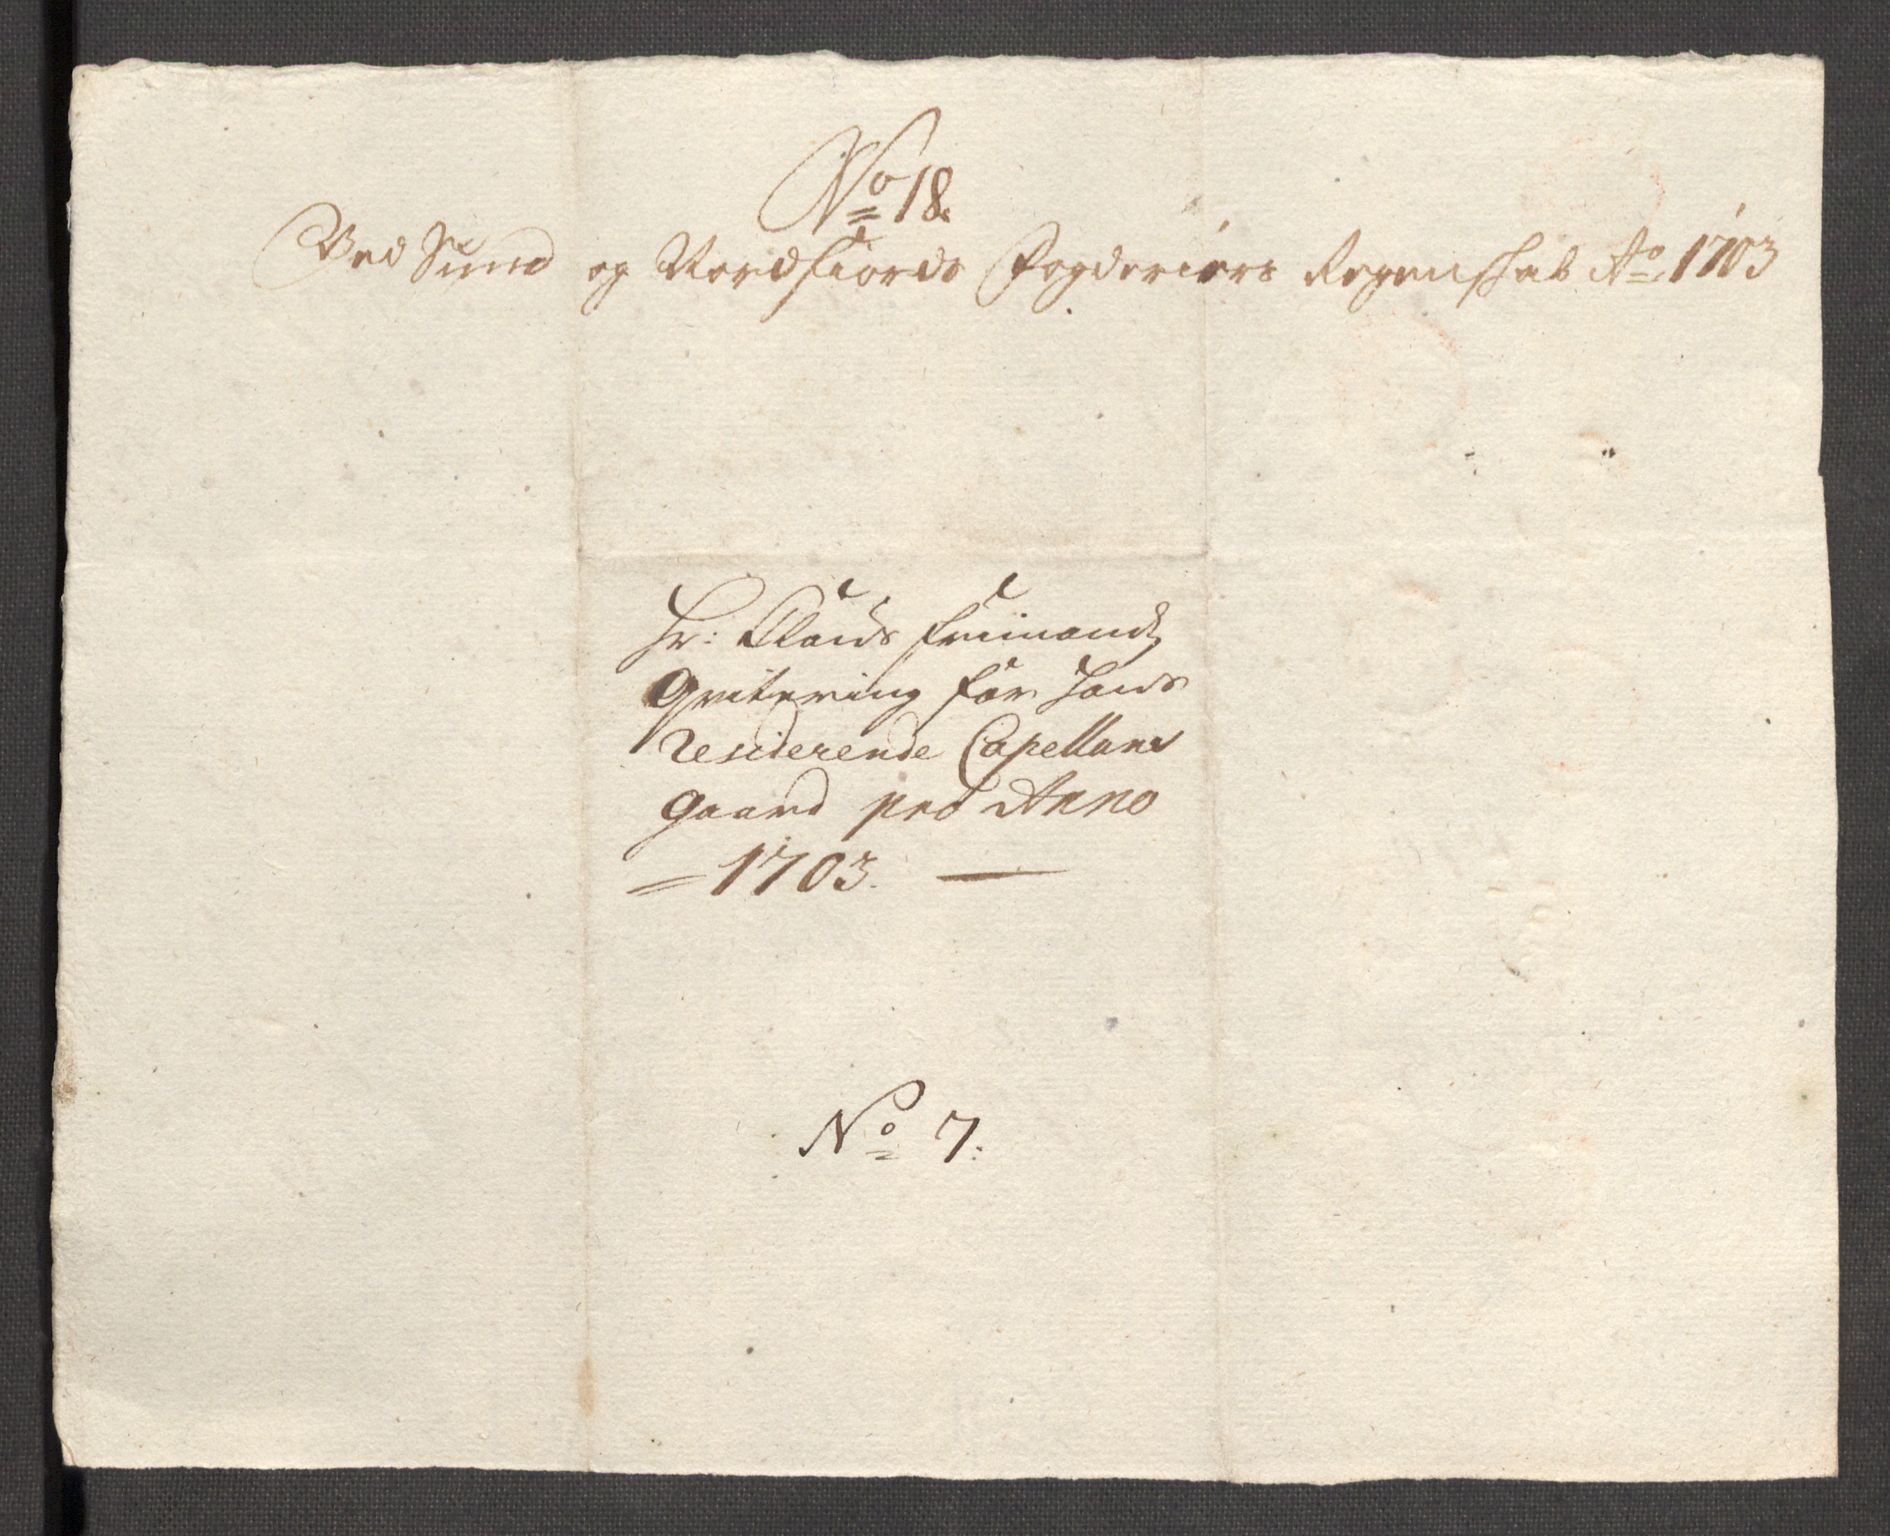 No 18.
Ved Sund og Nordfiords Fogderiers Regenskab Ao 1703
Hr: Claus Friimands
Qvitering for hans
residerende Capellans
gaard pro Anno
1703.
No 7.